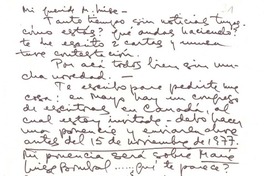 Mi querido M. Luise -
Tanto tiempo sin noticias tuyas.
cómo estás? qué andas haciendo?
te he escrito 2 cartas y nunca
tuve contestación.
Por acá todos bien sin mu-
cha novedad. -
Te escribo para pedirte una
cosa: en mayo hay un congreso
de escritoras en Canadá, al
cual estoy invitada - debo hacer
una ponencia y enviarla ahora
antes del 15 de noviembre de 1977.
Mi ponencia será sobre María
Luisa Bombal.... ¿qué te parece?